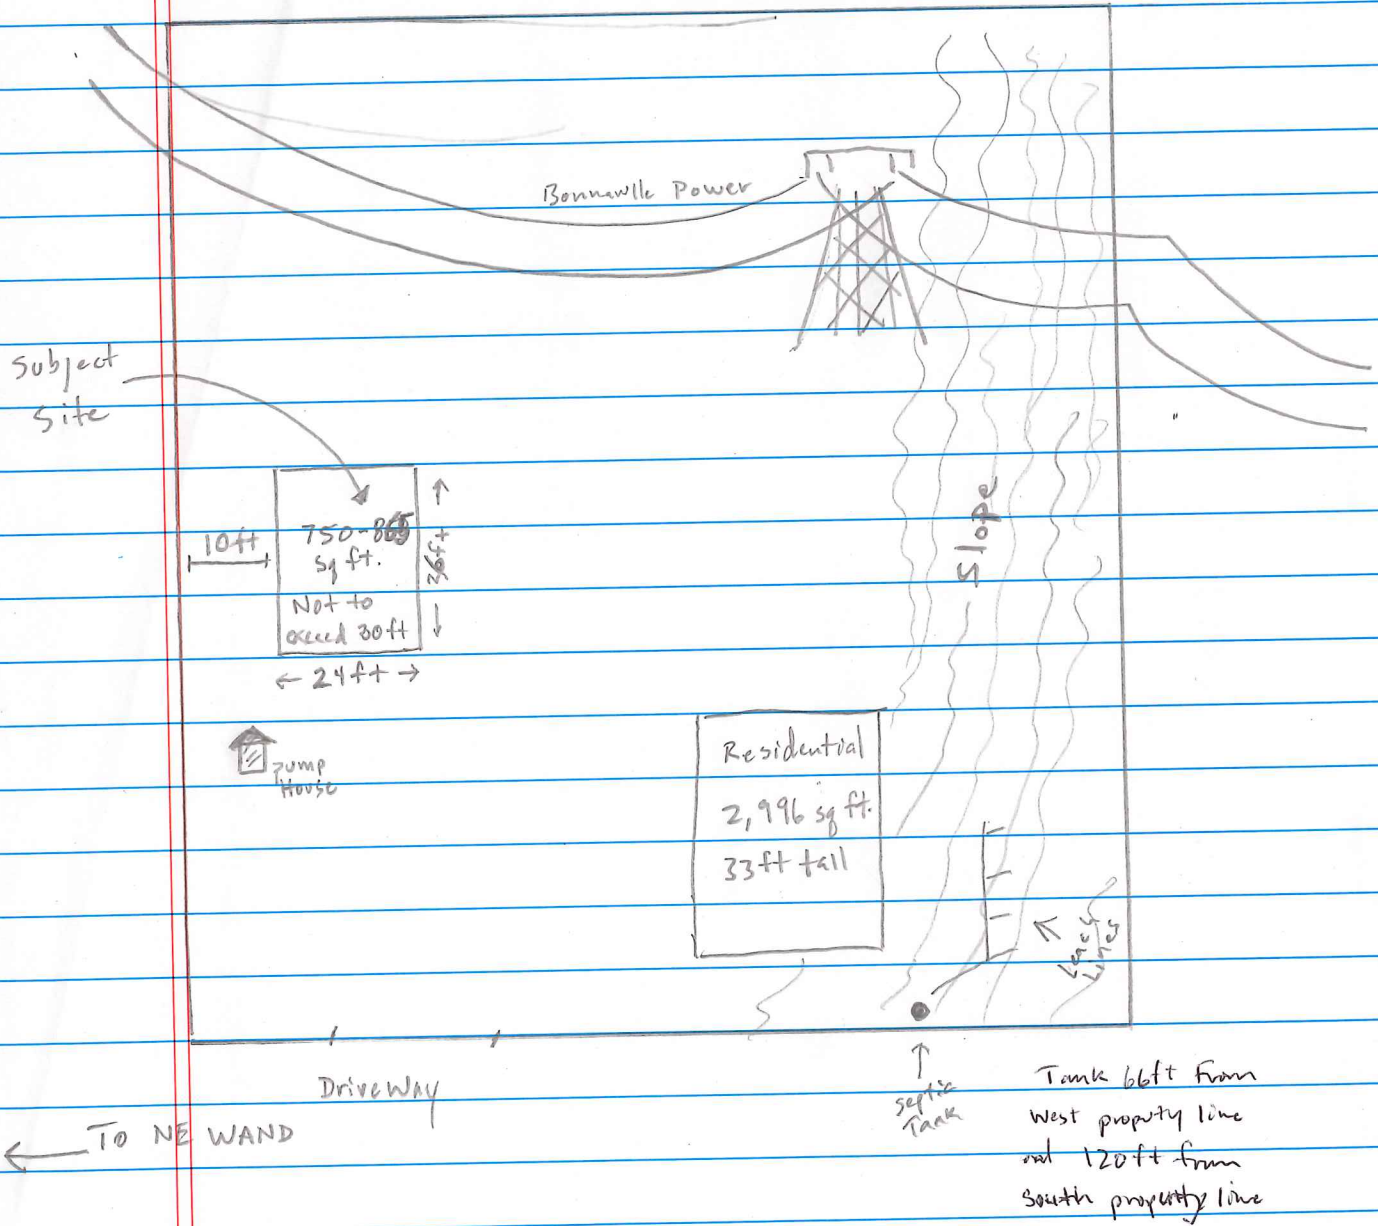 Bonnewlle Power
Subject
Site
10ft
750-865
sq ft.
Not to
exceed 30ft
36ft
24ft
Slope
pump
House
Residential
2,996 sq ft.
33ft tall
Leach
Lines
DriveWay
TO NE WAND
septic
Tank
Tank 66ft from
West property line
and 120ft from
South property line